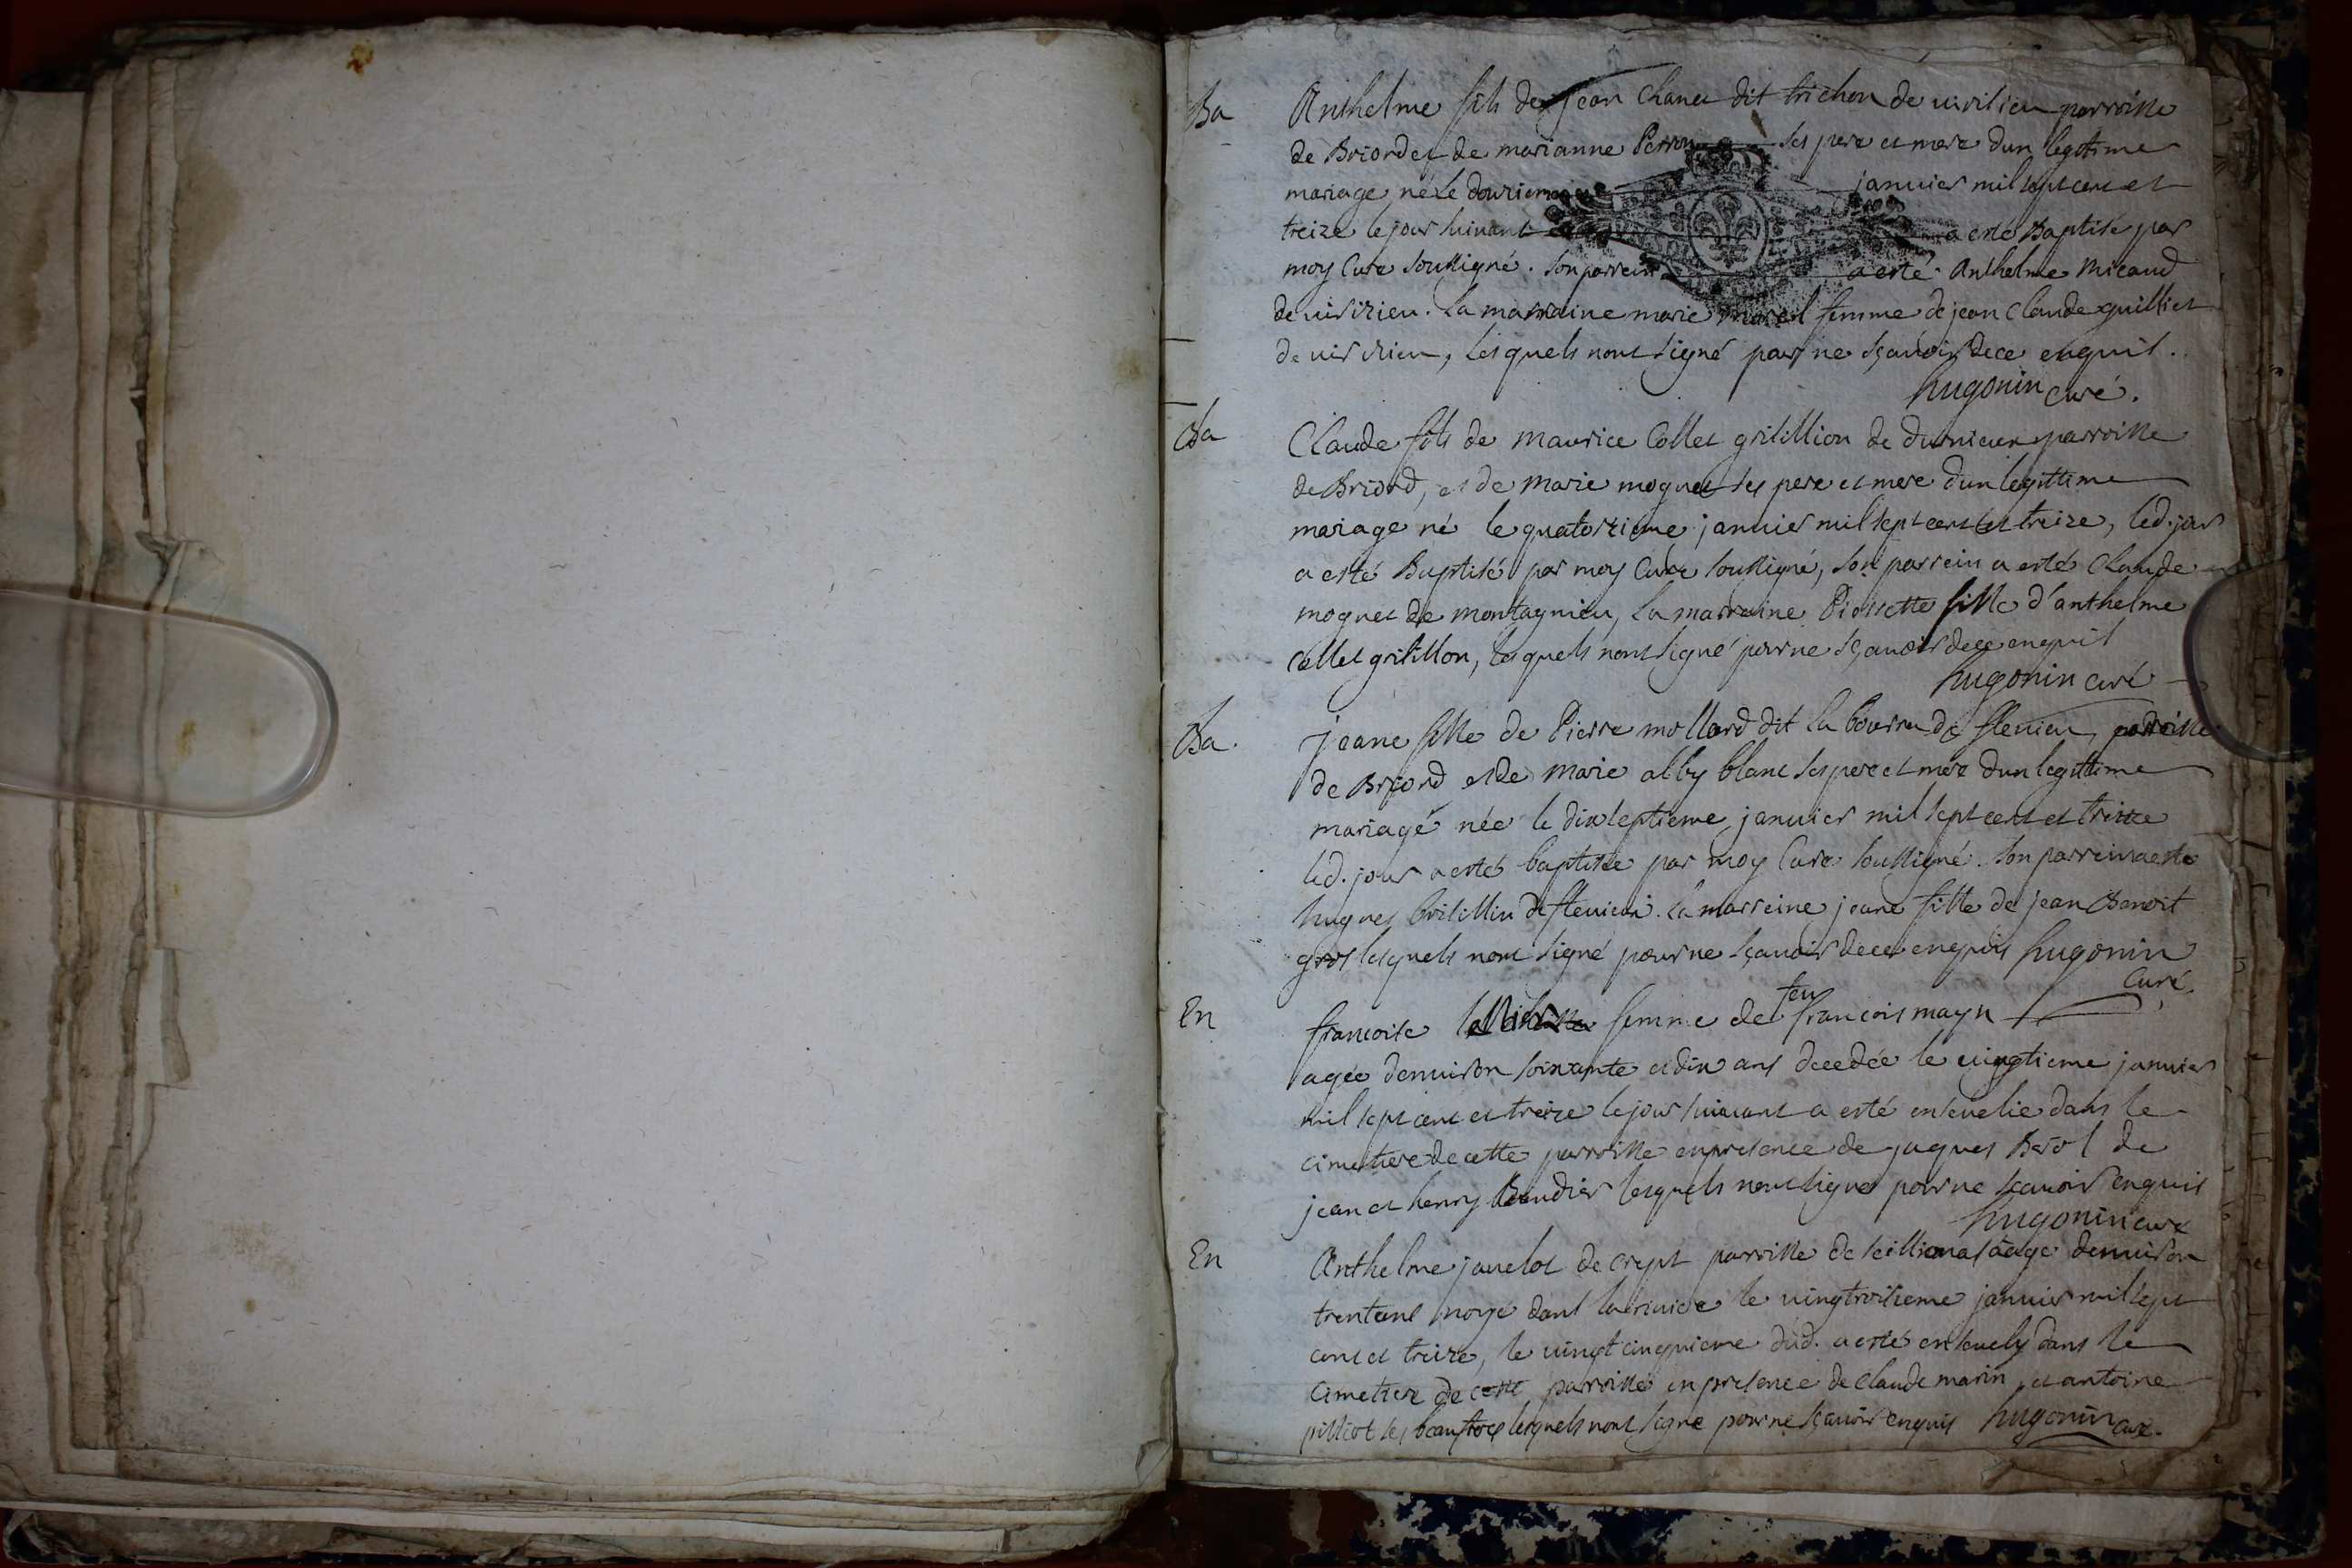 Ba
Anthelme fils de jean Chanel dit trichon de uirilieu parroisse
de Briord et de marianne Perron ses pere et mere dun legitime
mariage né le douzieme januier mil sept cent et
treize le jour suiuant a esté Baptisé par
moy Curé soussigné. Son parrein a esté Anthelme Micaud
de uirizieu. La marraine marie femme de jean Claude quilliet
de uirizieu, lesquels nont signé pour ne sçauoir de ce enquis.
hugonin curé.
Ba
Claude fils de maurice Collet grisillion de parroisse
de Briord, et de marie moguet ses pere et mere dun legittime
mariage né le quatorzieme januier mil sept cent et treize, led. jour
a esté Baptisé par moy Curé soussigné, son parrein a esté Claude
moguet de montagnieu, la marraine Pierrette fille d'anthelme
Collet grisillon, lesquels nont signé pour ne sçauoir de ce enquis
hugonin curé
Ba.
jeane fille de Pierre mollard dit la bourru de flenieu parroisse
de Briord et de marie alby blanc ses pere et mere dun legittime
mariage née le dixseptieme januier mil sept cent et treize
led. jour a esté baptisée par moy Curé soussigné. Son parrein a esté
hugues de flenieu. La marreine jeane fille de jean Benoit
gros lesquels nont signé pour ne sçauoir de ce enquis hugonin
curé.
En
francoise femme de feu francois mayn
agée denuiron soixante et dix ans decedée le uingtieme januier
mil sept cent et treize le jour suiuant a esté enseuelie dans le
cimetiere de cette parroisse en presence de jaques Berol de
jean et henry Baudier lesquels nont signé pour ne sçauoir enquis
hugonin curé
En
Anthelme jauelot de crept parroisse de seillionas âagé denuiron
trente ans noyé dans la riuiere le uingtroisieme januier mil sept
cent et treize, le uingt cinquieme dud. a esté enseuely dans le
Cimetiere de cette parroisse en presence de claude marin, et antoine
pilliot ses beaufreres lesquels nont signé pour ne sçauoir enquis hugonin curé.